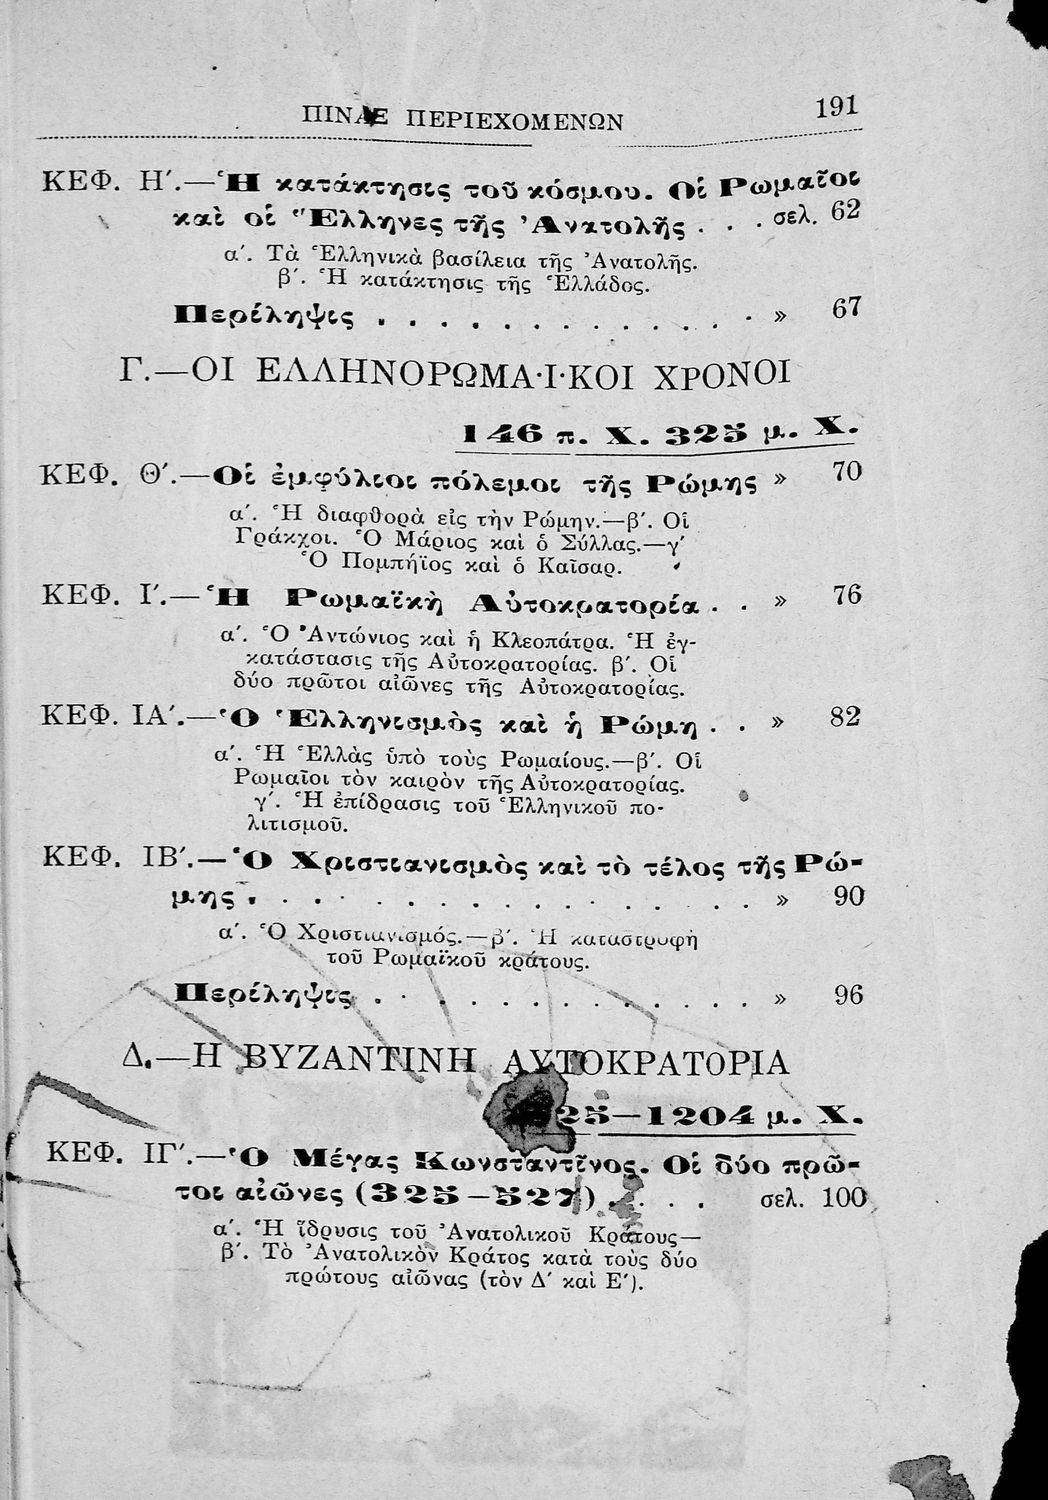 ΠΙΝΑΞ ΠΕΡΙΕΧΟΜΕΝΩΝ 191
ΚΕΦ. Η΄.—Ἡ κατάκτησις τοῦ κόσμου. Οἱ Ρωμαῖοι
καὶ οἱ Ἕλληνες τῆς Ἀνατολῆς . . . σελ. 62
α΄. Τὰ Ἑλληνικὰ βασίλεια τῆς Ἀνατολῆς.
β΄. Ἡ κατάκτησις τῆς Ἑλλάδος.
Περίληψις . . . . . . . . . . . . . » 67
Γ.—ΟΙ ΕΛΛΗΝΟΡΩΜΑ·Ι·ΚΟΙ ΧΡΟΝΟΙ
146 π. Χ. 325 μ. Χ.
ΚΕΦ. Θ΄.—Οἱ ἐμφύλιοι πόλεμοι τῆς Ρώμης » 70
α΄. Ἡ διαφθορὰ εἰς τὴν Ρώμην.—β΄. Οἱ
Γράκχοι. Ὁ Μάριος καὶ ὁ Σύλλας.—γ΄
Ὁ Πομπήϊος καὶ ὁ Καῖσαρ.
ΚΕΦ. Ι΄.—Ἡ Ρωμαϊκὴ Αὐτοκρατορία . . » 76
α΄. Ὁ Ἀντώνιος καὶ ἡ Κλεοπάτρα. Ἡ ἐγ-
κατάστασις τῆς Αὐτοκρατορίας. β΄. Οἱ
δύο πρῶτοι αἰῶνες τῆς Αὐτοκρατορίας.
ΚΕΦ. ΙΑ΄.—Ὁ Ἑλληνισμὸς καὶ ἡ Ρώμη . . » 82
α΄. Ἡ Ἑλλὰς ὑπὸ τοὺς Ρωμαίους.—β΄. Οἱ
Ρωμαῖοι τὸν καιρὸν τῆς Αὐτοκρατορίας.
γ΄. Ἡ ἐπίδρασις τοῦ Ἑλληνικοῦ πο-
λιτισμοῦ.
ΚΕΦ. ΙΒ΄.—Ὁ Χριστιανισμὸς καὶ τὸ τέλος τῆς Ρώ-
μης . . . . . . . . . . . . . . . » 90
α΄. Ὁ Χριστιανισμός.—β΄. Ἡ καταστροφὴ
τοῦ Ρωμαϊκοῦ κράτους.
Περίληψις . . . . . . . . . . . . . » 96
Δ.—Η ΒΥΖΑΝΤΙΝΗ ΑΥΤΟΚΡΑΤΟΡΙΑ
325—1204 μ. Χ.
ΚΕΦ. ΙΓ΄.—Ὁ Μέγας Κωνσταντῖνος. Οἱ δύο πρῶ-
τοι αἰῶνες (325–527) . . . . σελ. 100
α΄. Ἡ ἵδρυσις τοῦ Ἀνατολικοῦ Κράτους—
β΄. Τὸ Ἀνατολικὸν Κράτος κατὰ τοὺς δύο
πρώτους αἰῶνας (τὸν Δ΄ καὶ Ε΄).